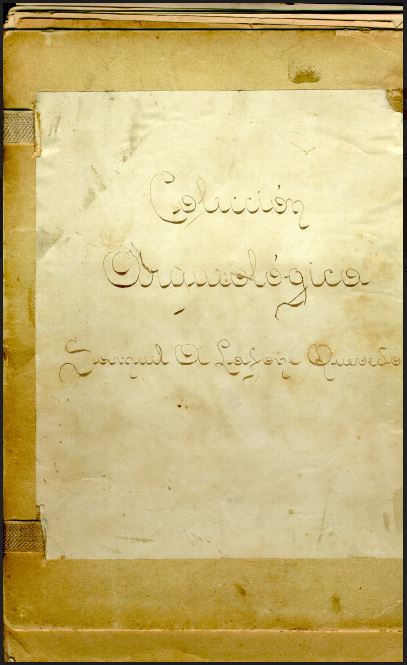 Colección
Arqueológica
Samuel A Lafone Quevedo